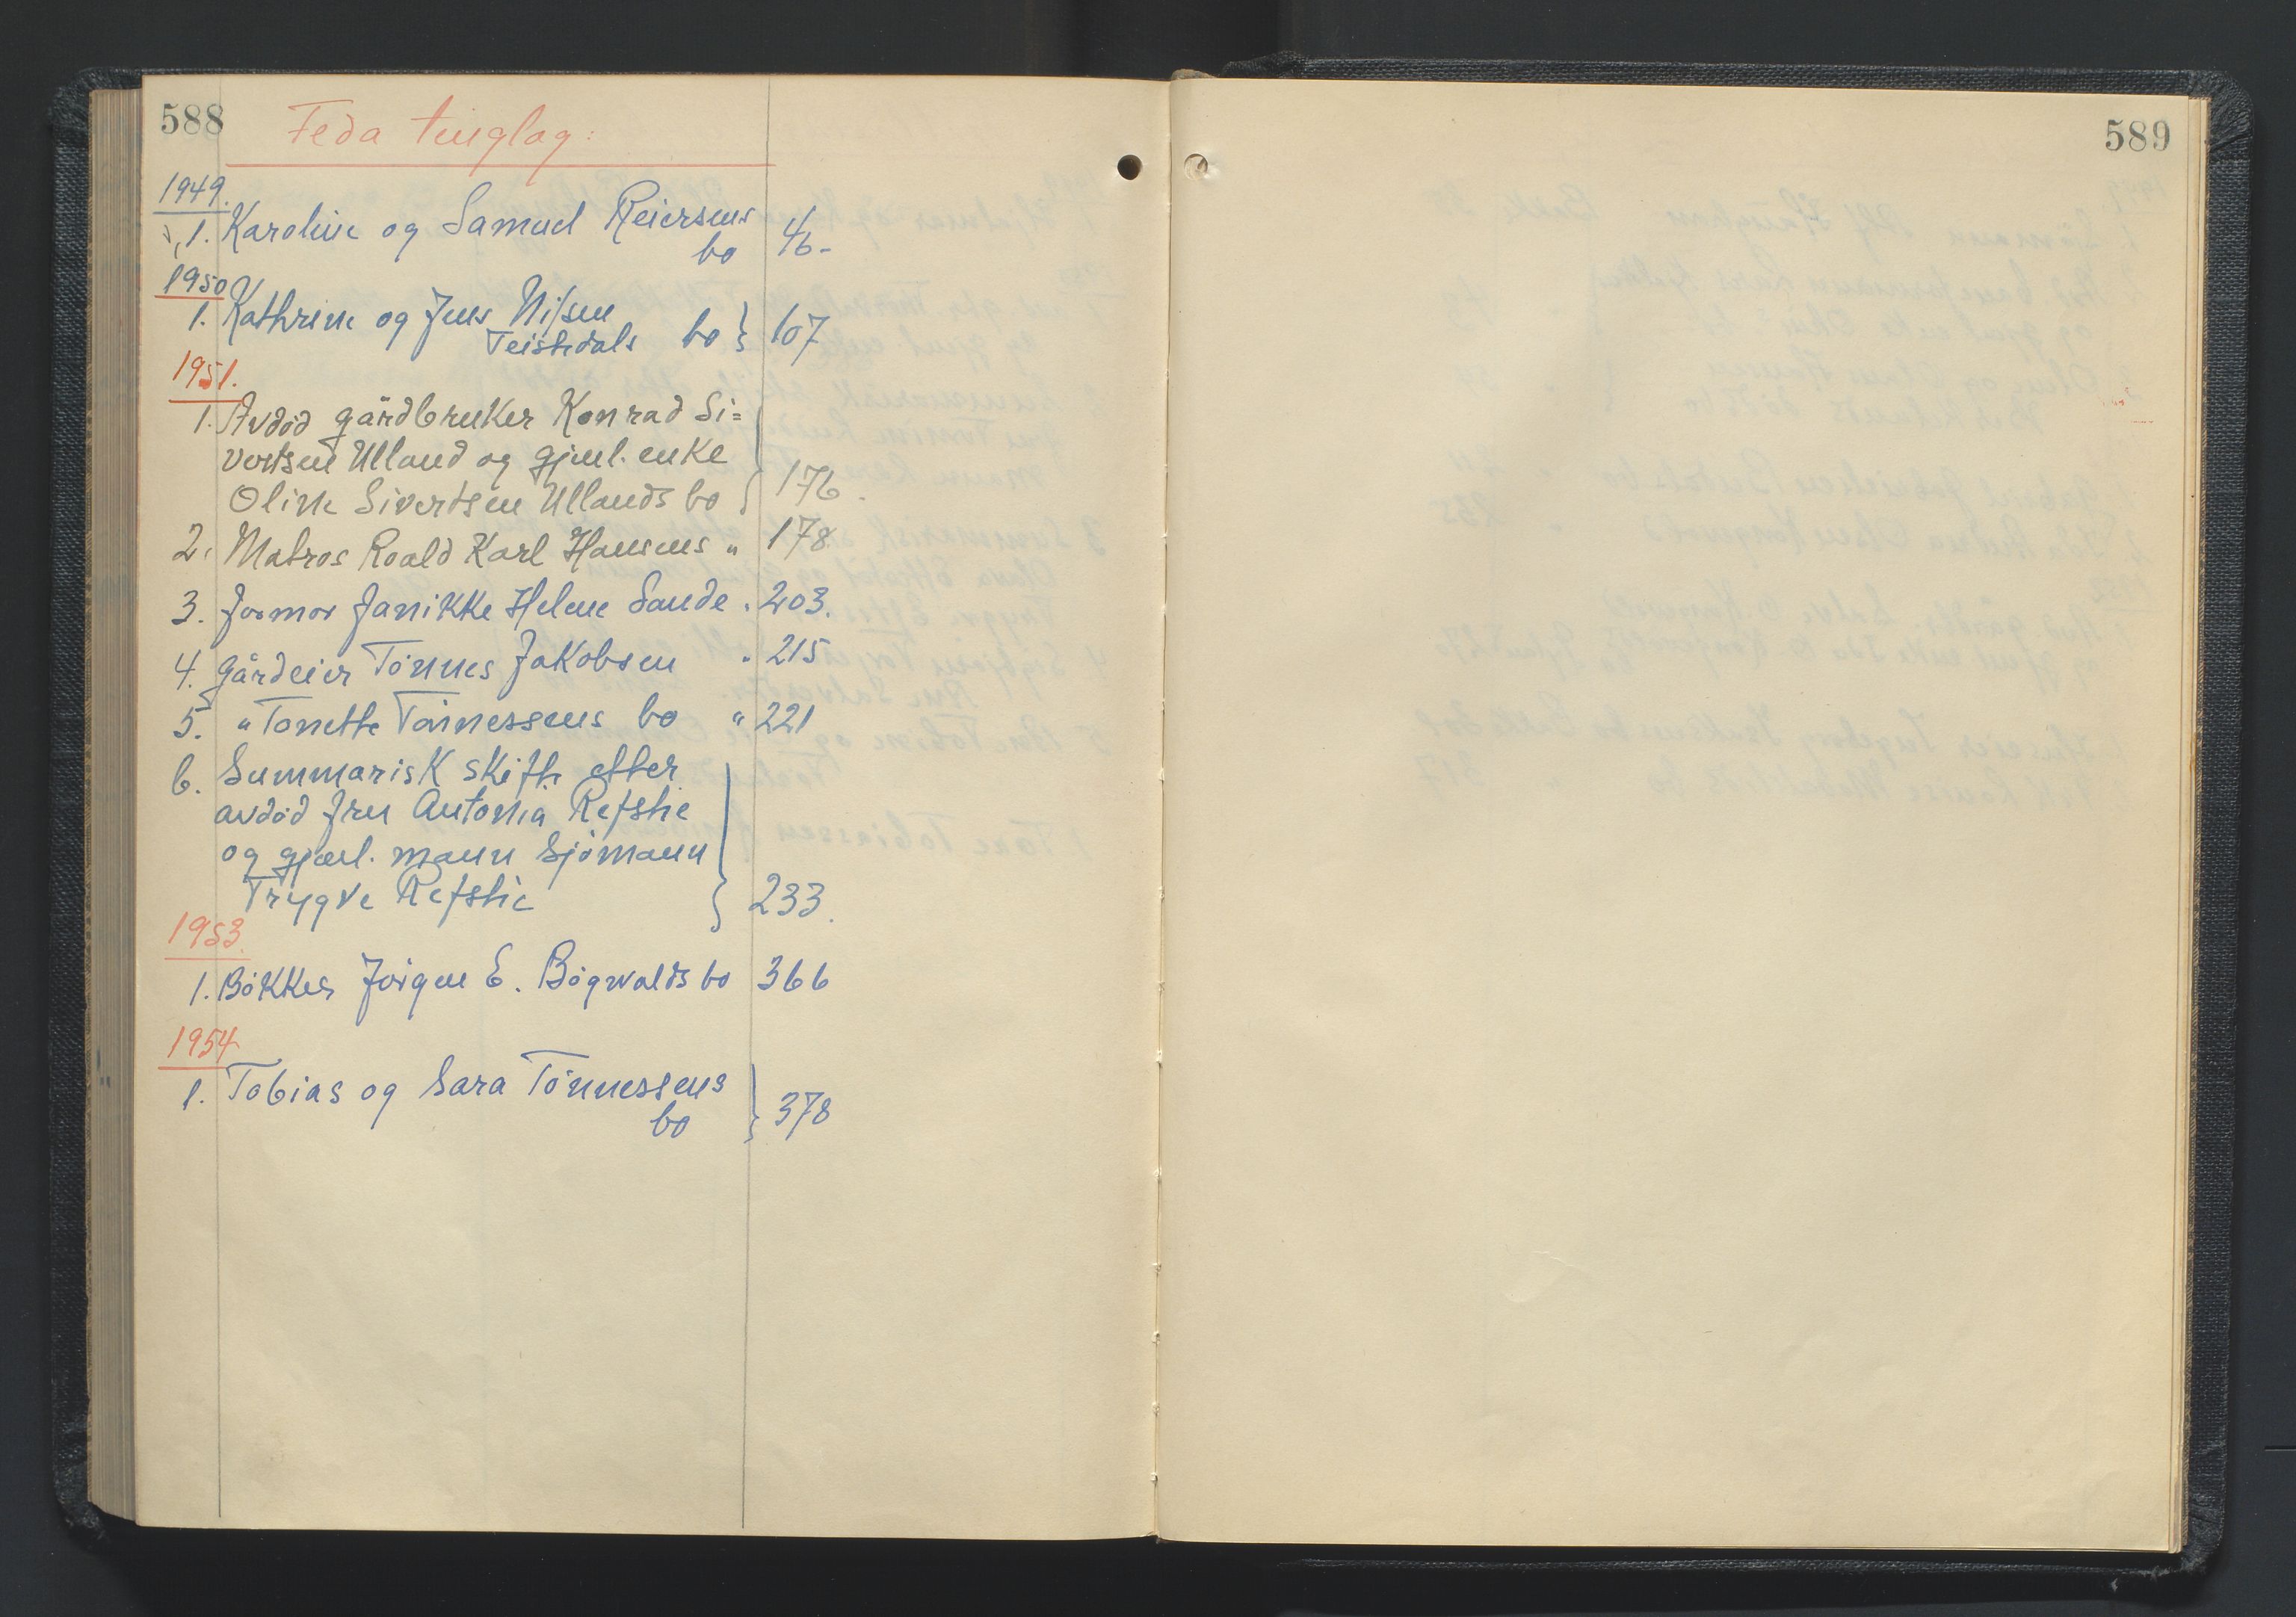 588
Feda tinglag:
1949.
1. Karoline og Samuel Reiersens
bo 46-
1950
1. Kathrine og Jens Nilsen
Teistedals bo } 107
1951.
1. Avdød gårdbruker Konrad Si=
vertsen Ulland og gjenl. enke
Oline Sivertsen Ullands bo } 176.
2. Matros Roald Karl Hansens " 178
3. Jormor Janikke Helene Sande . 203.
4. Gårdeier Tönnes Jakobsen " 215
5. " Tonette Tönnessens bo " 221
6. Summarisk skifte efter
avdød fru Antonia Refstie
og gjenl. mann Sjömann
Trygve Refstie } 233.
1953.
1. Bøkker Jørgen E. Bøgwalds bo 366
1954
1. Tobias og Sara Tönnessens
bo } 378
589